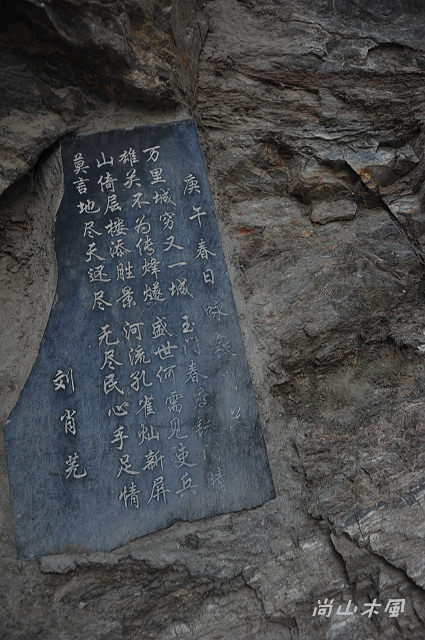 庚午春日咏铁
万里城穷又一城 玉门春度铁门晴
雄关不为传烽燧 盛世何需见吏兵
山倚层楼添胜景 河流孔雀灿新屏
莫言地尽天还尽 无尽民心手足情
刘肖芜
尚山木風